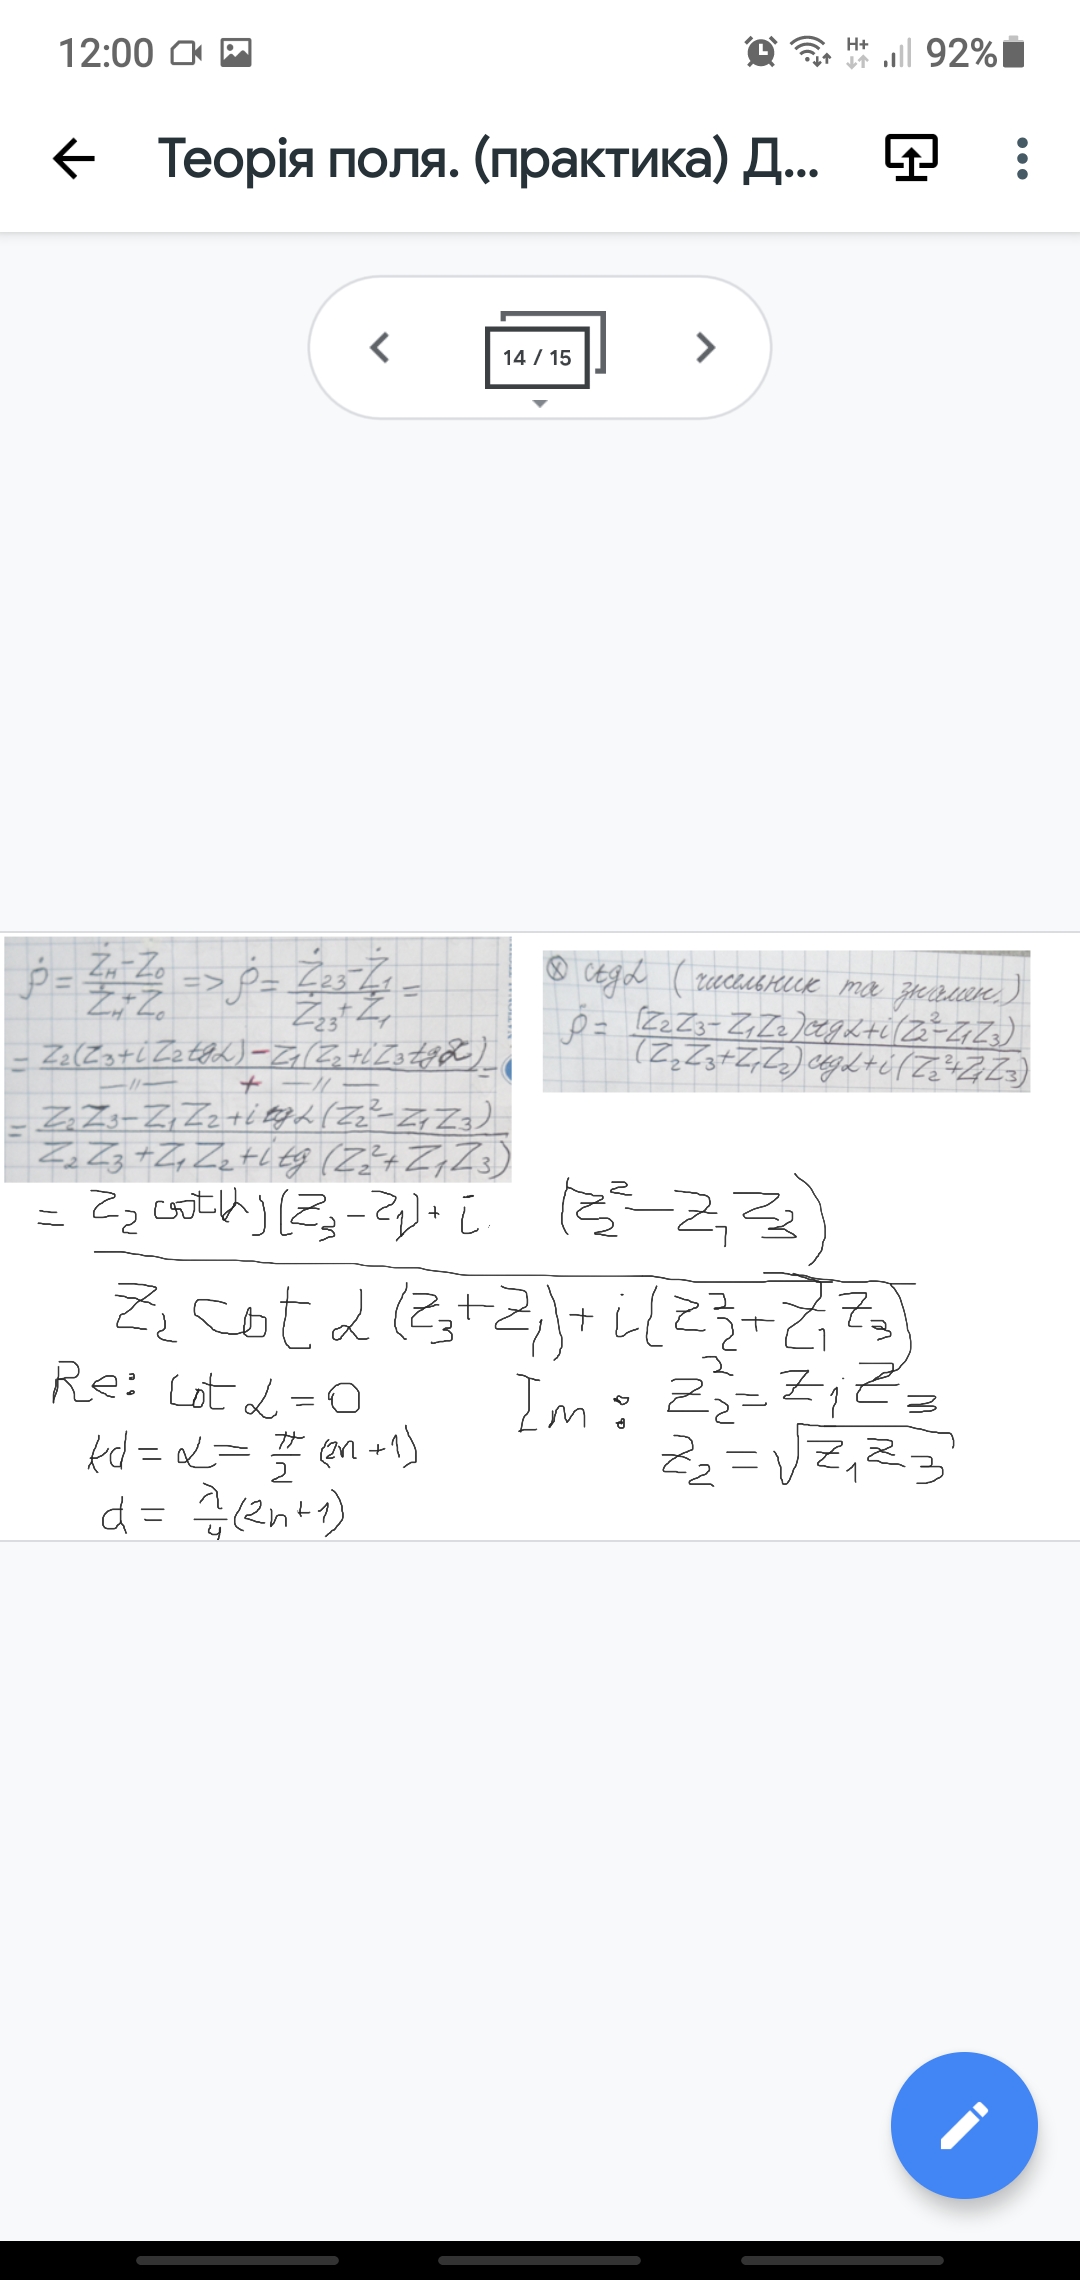 12:00 H+ 92%
Теорія поля. (практика) Д...
14 / 15
ρ̇ = (Żн - Z0)/(Żн + Z0) => ρ̇ = (Ż23 - Ż1)/(Ż23 + Ż1) =
= (Z2(Z3 + iZ2 tgα) - Z1(Z2 + iZ3 tgα))/(—//— + —//—) =
= (Z2Z3 - Z1Z2 + i tgα (Z2² - Z1Z3))/(Z2Z3 + Z1Z2 + i tg (Z2² + Z1Z3))
⊗ ctgα (чисельник та знамен.)
ρ̇ = ((Z2Z3 - Z1Z2) ctgα + i(Z2² - Z1Z3))/((Z2Z3 + Z1Z2) ctgα + i(Z2² + Z1Z3))
= (Z2 cot α)(Z3 - Z1) + i (Z2² - Z1Z3))/(Z2 cot α (Z3 + Z1) + i(Z2² + Z1Z3))
Re: cot α = 0
kd = α = π/2 (2n + 1)
d = λ/4 (2n + 1)
Im: Z2² = Z1Z3
Z2 = √Z1Z3